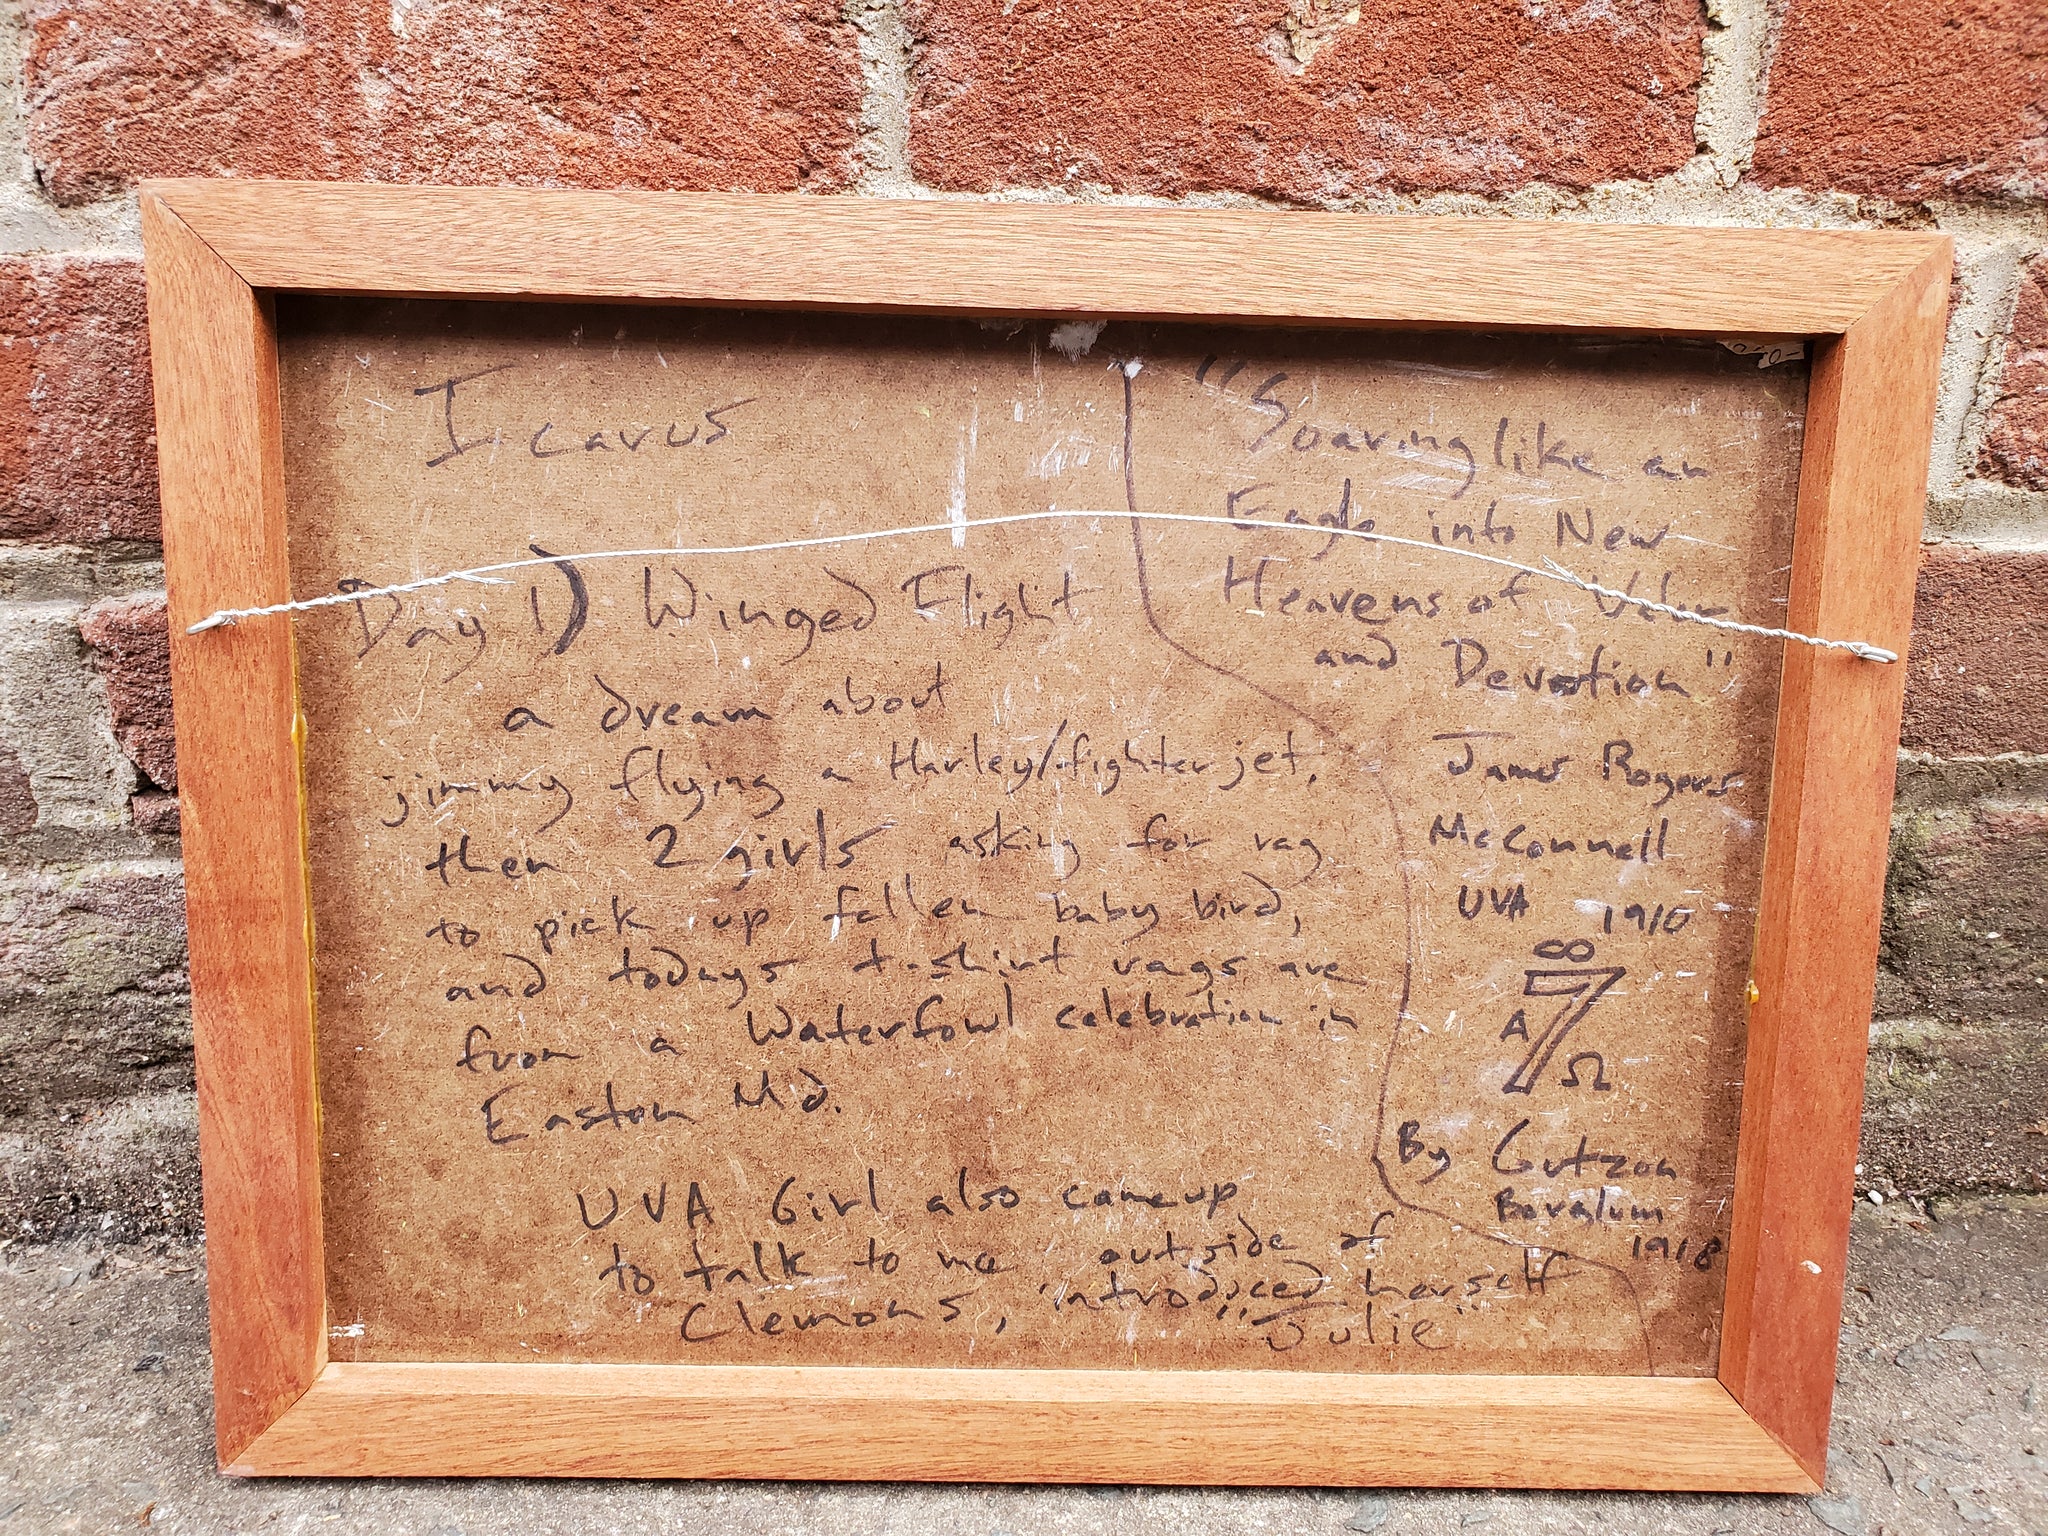 Icarus
Day 1) Winged Flight
a dream about
jimmy flying a Harley/fighter jet,
then 2 girls asking for rag
to pick up fallen baby bird,
and todays t-shirt rags are
from a Waterfowl celebration in
Easton Md.
UVA Girl also came up
to talk to me outside of
Clemons, introduced herself
"Julie"
"Soaring like an
Eagle into New
Heavens of Valor
and Devotion"
James Rogers
McConnell
UVA 1910
∞
7
A
Ω
By Gutzon
Borglum
1918